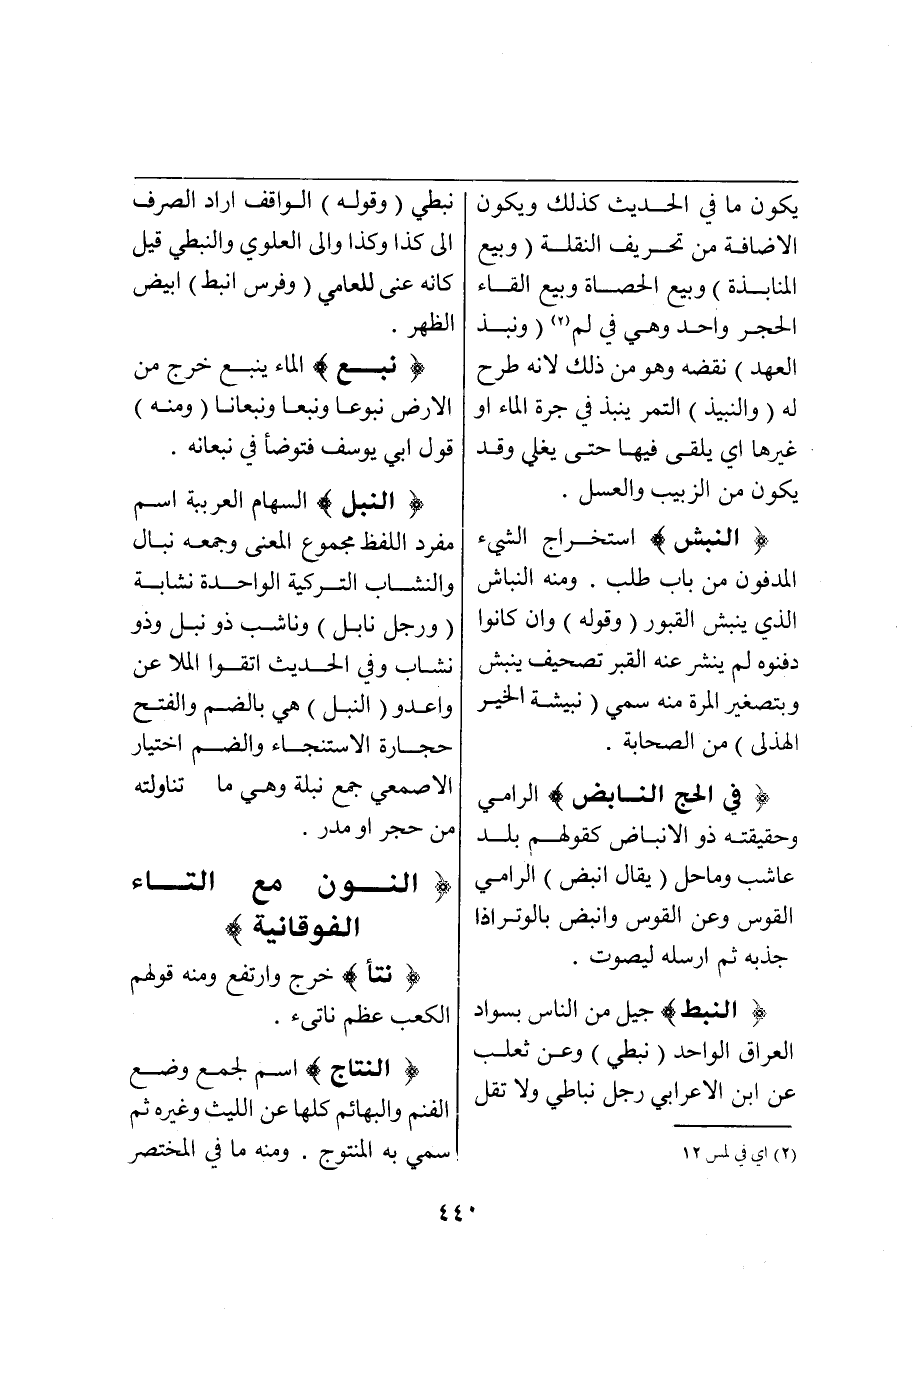 يكون ما في الحديث كذلك ويكون
الاضافة من تحريف النقلة ( وبيع
المنابذة ) وبيع الحصاة وبيع القاء
الحجر واحد وهي في لم(٢) ( ونبذ
العهد ) نقضه وهو من ذلك لانه طرح
له ( والنبيذ ) التمر ينبذ في جرة الماء او
غيرها اي يلقى فيها حتى يغلي وقد
يكون من الزبيب والعسل .
﴿ النبش ﴾ استخراج الشيء
المدفون من باب طلب . ومنه النباش
الذي ينبش القبور ( وقوله ) وان كانوا
دفنوه لم ينشر عنه القبر تصحيف ينبش
وبتصغير المرة منه سمي ( نبيشة الخير
الهذلي ) من الصحابة .
﴿ في الحج النابض ﴾ الرامي
وحقيقته ذو الانباض كقولهم بلد
عاشب وماحل ( يقال انبض ) الرامي
القوس وعن القوس وانبض بالوتر اذا
جذبه ثم ارسله ليصوت .
﴿ النبط ﴾ جيل من الناس بسواد
العراق الواحد ( نبطي ) وعن ثعلب
عن ابن الاعرابي رجل نباطي ولا تقل
(٢) اي في لمس ١٢
نبطي ( وقوله ) الواقف اراد الصرف
الى كذا وكذا والى العلوي والنبطي قيل
كانه عنى للعامي ( وفرس انبط ) ابيض
الظهر .
﴿ نبع ﴾ الماء ينبع خرج من
الارض نبوعا ونبعا ونبعانا ( ومنه )
قول ابي يوسف فتوضأ في نبعانه .
﴿ النبل ﴾ السهام العربية اسم
مفرد اللفظ مجموع المعنى وجمعه نبال
والنشاب التركية الواحدة نشابة
( ورجل نابل ) وناشب ذو نبل وذو
نشاب وفي الحديث اتقوا الملا عن
واعدو ( النبل ) هي بالضم والفتح
حجارة الاستنجاء والضم اختيار
الاصمعي جمع نبلة وهي ما تناولته
من حجر او مدر .
﴿ النون مع التاء
الفوقانية ﴾
﴿ نتأ ﴾ خرج وارتفع ومنه قولهم
الكعب عظم ناتىء .
﴿ النتاج ﴾ اسم لجمع وضع
الغنم والبهائم كلها عن الليث وغيره ثم
سمي به المنتوج . ومنه ما في المختصر
٤٤٠